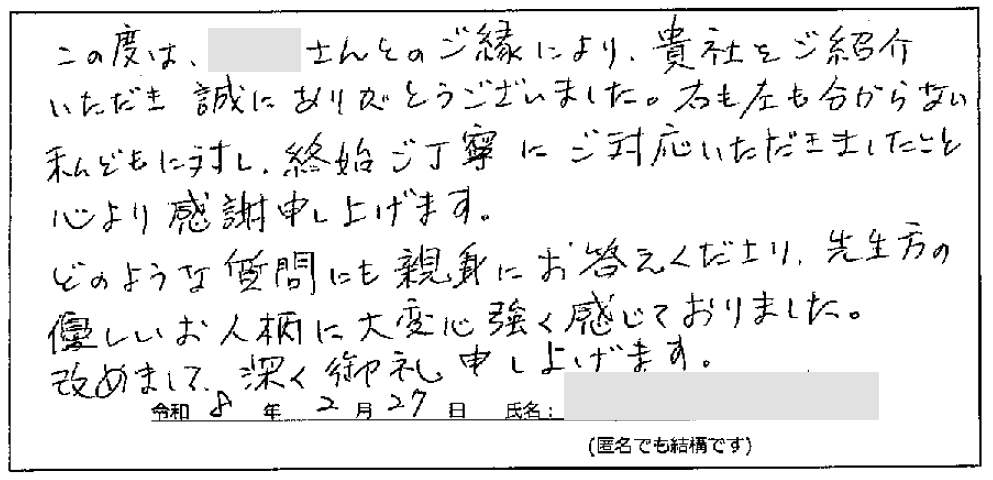 この度は、 さんとのご縁により、貴社をご紹介
いただき 誠にありがとうございました。右も左も分からない
私どもに対し、終始ご丁寧にご対応いただきましたこと
心より感謝申し上げます。
どのような質問にも親身にお答えくださり、先生方の
優しいお人柄に大変心強く感じておりました。
改めまして、深く御礼申し上げます。
令和 8 年 2 月 27 日 氏名：
(匿名でも結構です)